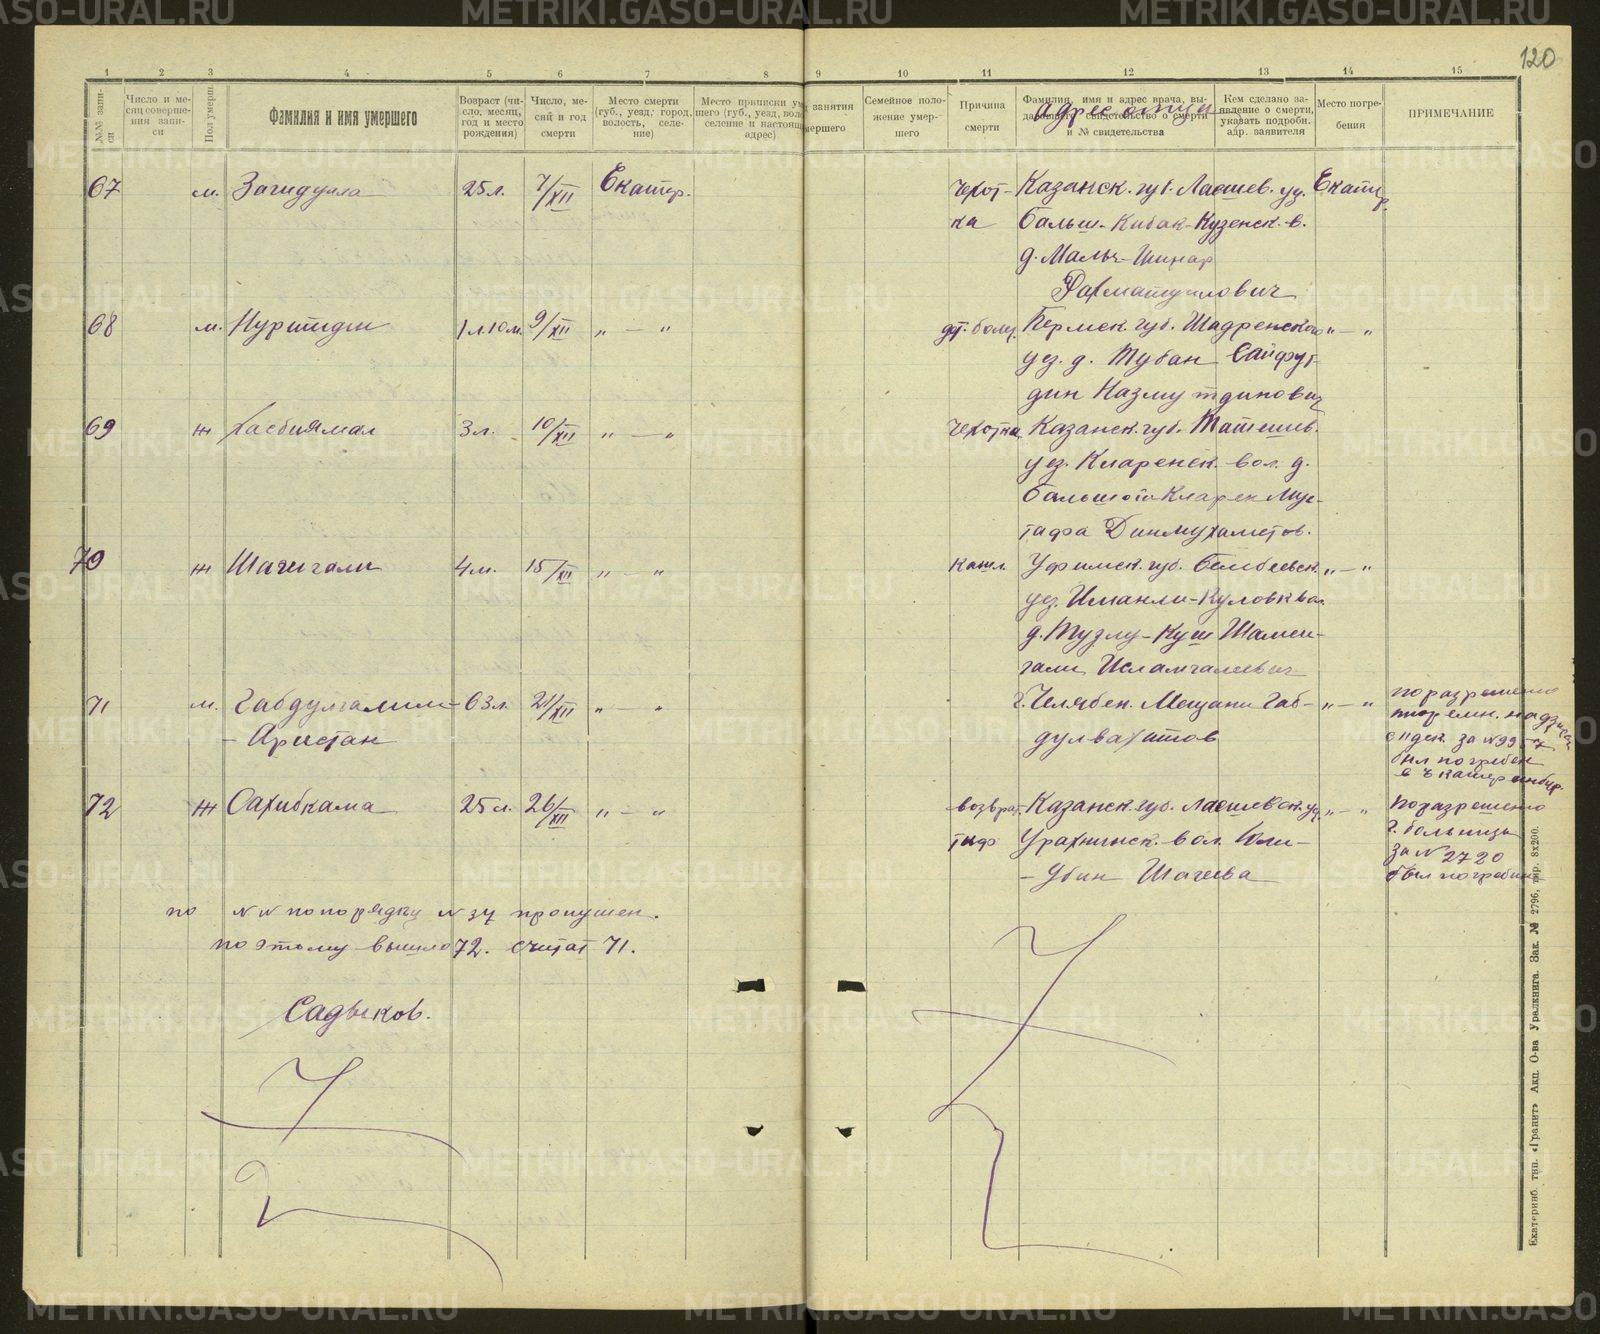 120
1 2 3 4 5 6 7 8 9 10 11 12 13 14 15
№№ записи
Число и месяц совершения записи
Пол умерш.
Фамилия и имя умершего
Возраст (число, месяц, год и место рождения)
Число, месяц и год смерти
Место смерти (губ., уезд, город, волость, селение)
Место приписки ум
шего (губ., уезд, воло
селение и настоящ
адрес)
занятия
мершего
Семейное положение умершего
Причина смерти
Фамилия, имя и адрес врача, выдавшего свидетельство о смерти и № свидетельства
Адрес отца
Кем сделано заявление о смерти, указать подробн. адр. заявителя
Место погребения
ПРИМЕЧАНИЕ
67 м. Загидулла 25 л. 7/XII Екатер. Чехот- Казанск. губ. Лаешев. уз. Екатер.
ка Больш-Кибак-Кузенск. в.
д. Мальч-Шинар
Рахматуллович
68 м. 1 л. 10 м. 9/XII „ — „ Пермск. губ. Шадренского „ — „
уез. д. Тубан Сайфут-
дин Назмутдинович
69 ж Хасбиямал 3 л. 10/XII „ — „ Чехотка Казанск. губ.
уез. Кларенск. вол. д.
Большой Кларен Мус-
тафа Динмухаметов.
70 ж Шагигали 4 м. 15/XII „ — „ кашл. Уфимск. губ. Белебеевск. „ — „
уез. вол.
д. Тузлу-Куш Шамси-
гали Исламгалиевич
71 м. Габдулгалим- 63 л. 21/XII „ — „ г. Челябен. Мещани Габ- „ — „
- Аристан дулвахитов
по разрешению
за №
был погребен
в Екатеринбур.
72 ж Сахибкама 25 л. 26/XII „ — „ возврат. Казанск. губ. Лаешевск. уз. „ — „
тиф Урахчинск. вол.
- Убин Шагиева
по разрешению
г. больницы
за № 2720
был погребен
по №№ по порядку № 34 пропушен.
по этому вышло 72. считат 71.
Садыков.
Екатеринб. тип. «Гранит» Акц. О-ва Уралкнига. Зак. № 2796, тир. 8х200.
METRIKI.GASO-URAL.RU